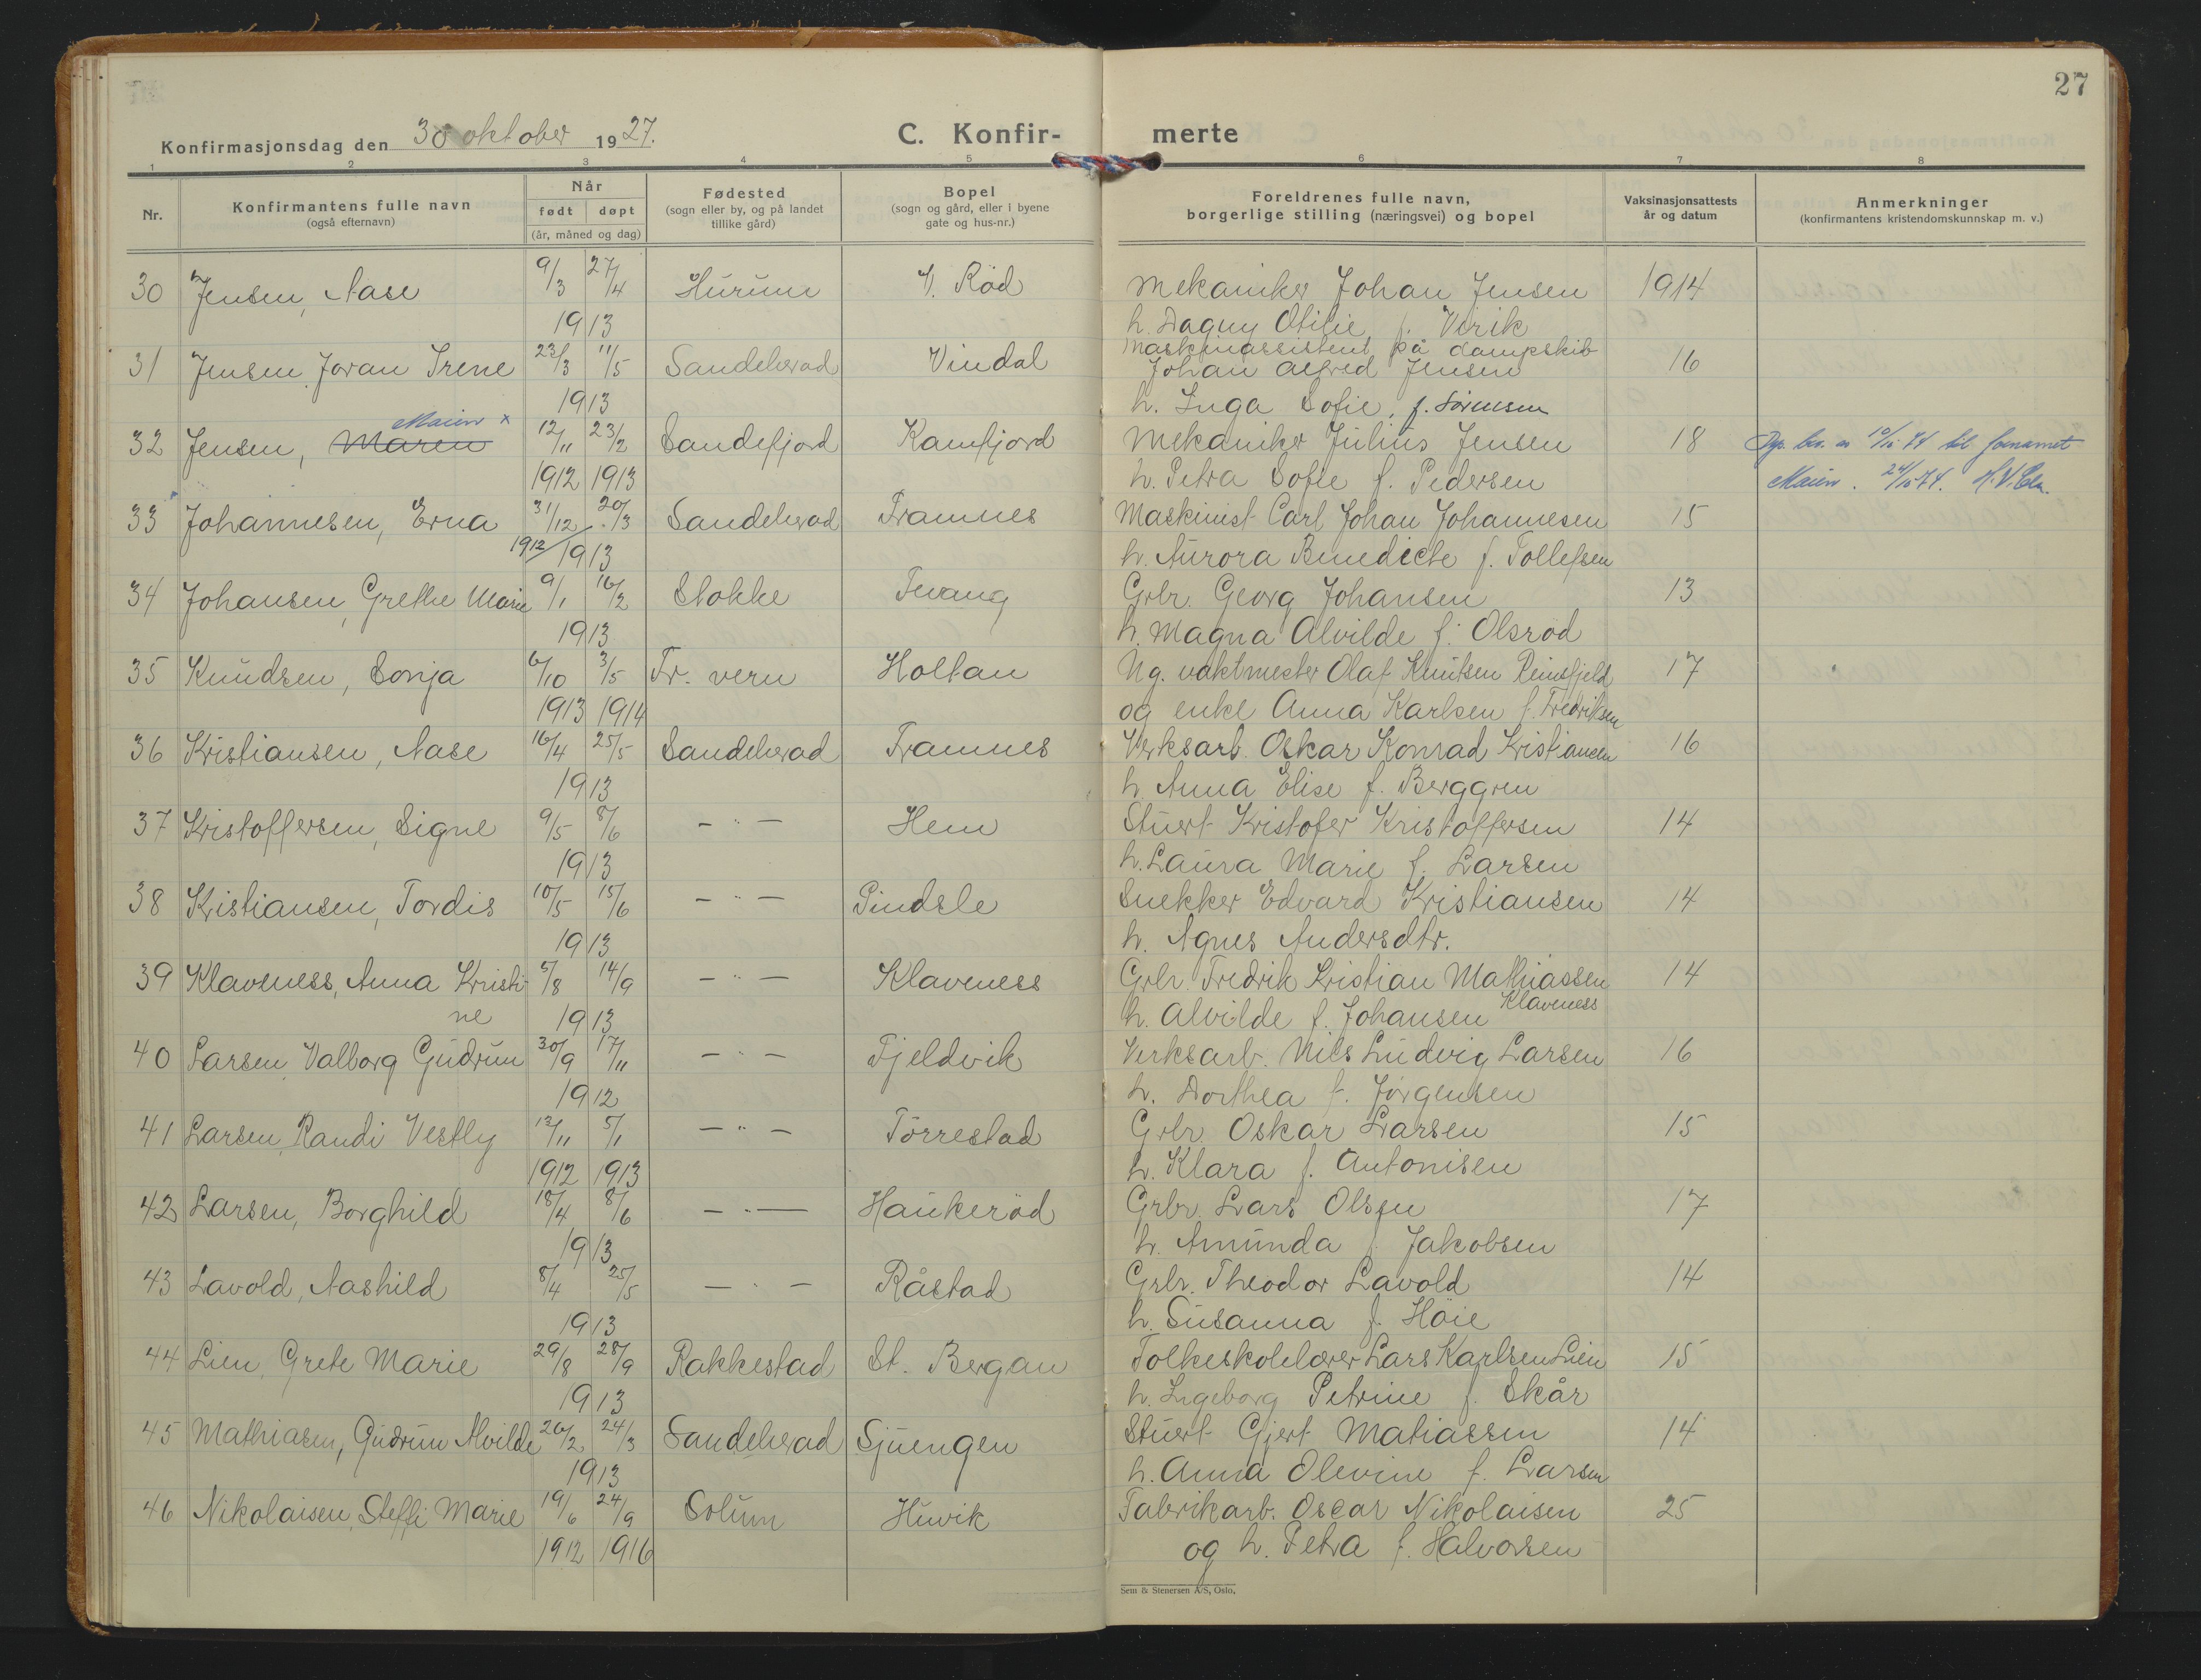 27
Konfirmasjonsdag den 30 oktober 1927.
C. Konfir- merte
1 2 3 4 5 6 7 8
Nr.
Konfirmantens fulle navn
(også efternavn)
Når
født døpt
(år, måned og dag)
Fødested
(sogn eller by, og på landet
tillike gård)
Bopel
(sogn og gård, eller i byene
gate og hus-nr.)
Foreldrenes fulle navn,
borgerlige stilling (næringsvei) og bopel
Vaksinasjonsattests
år og datum
Anmerkninger
(konfirmantens kristendomskunnskap m. v.)
30 Jensen, Aase 9/3 27/4 Hurum V. Rød Mekaniker Johan Jensen 1914
1913 h. Dagny Otilie f. Virik
31 Jensen, Joran Irene 23/3 11/5 Sandeherad Vindal Maskinassistent på dampskib 16
Johan Alfred Jensen
1913 h. Inga Sofie, f. Sørensen
Maien x
32 Jensen, Maren 12/11 23/2 Sandefjord Kamfjord Mekaniker Julius Jensen 18 til fornavnet
1912 1913 h. Petra Sofie f. Pedersen Maien.
33 Johannesen, Erna 31/12 20/3 Sandeherad Framnes Maskinist Carl Johan Johannesen 15
1912/1913 h. Aurora Benedicte f. Tollefsen
34 Johansen, Grethe Marie 9/1 16/2 Stokke Tevang Grbr. Georg Johansen 13
1913 h. Magna Alvilde f. Olsrød
35 Knudsen, Sonja 6/10 3/5 Fr. vern Holtan Ug. vaktmester Olaf Knutsen Reinsfjeld 17
1913 1914 og enke Anna Karlsen f. Fredriksen
36 Kristiansen, Aase 16/4 25/5 Sandeherad Framnes Verksarb. Oskar Konrad Kristiansen 16
1913 h. Anna Elise f. Berggren
37 Kristoffersen, Signe 9/5 8/6 — " — Hem Stuert Kristofer Kristoffersen 14
1913 h. Laura Marie f. Larsen
38 Kristiansen, Tordis 10/5 15/6 — " — Pindsle Snekker Edvard Kristiansen 14
1913 h. Agnes Andersdtr.
39 Klaveness, Anna Kristi- 5/8 14/9 — " — Klaveness Grbr. Fredrik Kristian Mathiassen 14
ne 1913 h. Alvilde f. Johansen Klaveness
40 Larsen, Valborg Gudrun 30/9 17/11 — " — Fjeldvik Verksarb. Nils Ludvig Larsen 16
1912 h. Dorthea f. Jørgensen
41 Larsen, Randi Vestly 12/11 5/1 — " — Tørrestad Grbr. Oskar Larsen 15
1912 1913 h. Klara f. Antonisen
42 Larsen, Borghild 18/4 8/6 — " — Haukerød Grbr. Lars Olsen 17
1913 h. Amunda f. Jakobsen
43 Lavold, Aashild 8/4 25/5 — " — Råstad Grbr. Theodor Lavold 14
1913 h. Susanna f. Høie
44 Lien, Grete Marie 29/8 28/9 Rakkestad St. Bergan Folkeskolelærer Lars Karlsen Lien 15
1913 h. Ingeborg Petrine f. Skår
45 Mathiasen, Gudrun Alvilde 26/2 24/3 Sandeherad Sjuengen Stuert Gjert Matiassen 14
1913 h. Anna Olevine f. Larsen
46 Nikolaisen, Steffi Marie 19/6 24/9 Solum Huvik Fabrikarb. Oscar Nikolaisen 25
1912 1916 og h. Petra f. Halvorsen
Sem & Stenersen A/S, Oslo.